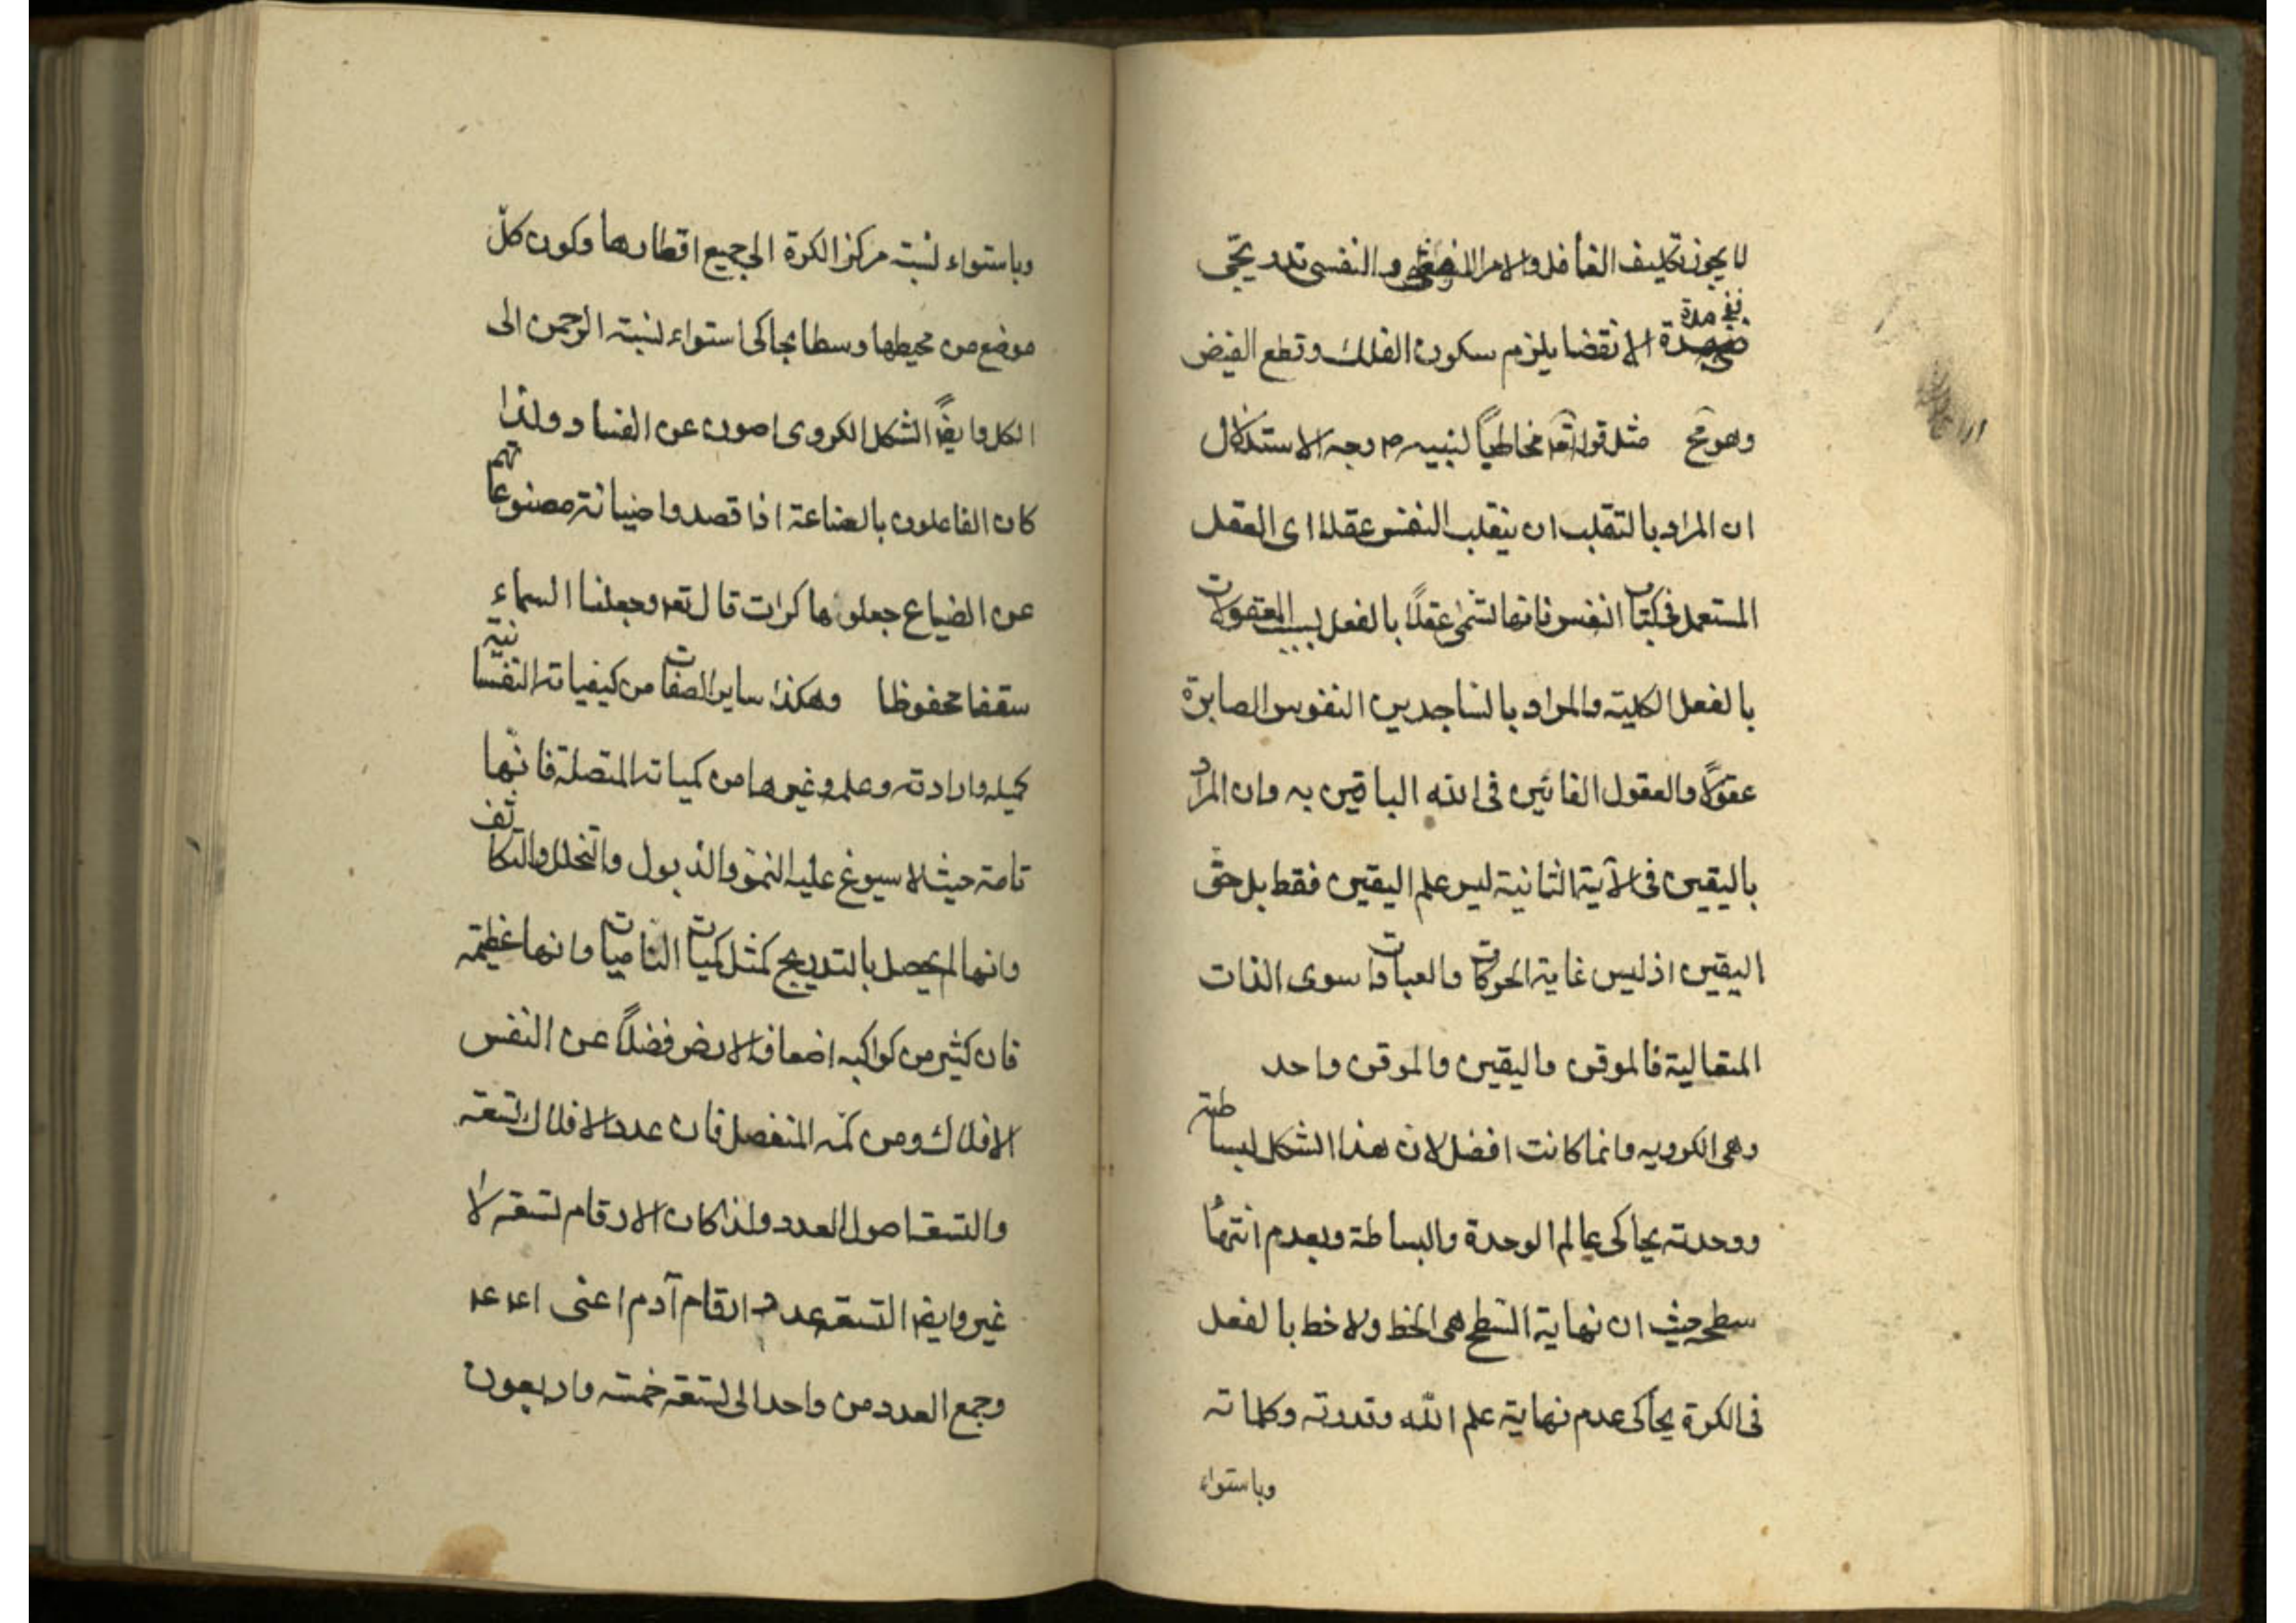 لا يجوز تكليف الغافل والامر النفسى تدريجى
ففى مدة
مدة الانقضا يلزم سكون الفلك وقطع الفيض
وهو مح مثل قوله تعه مخاطبا لنبيه ص وجه الاستدلال
ان المراد بالتقلب ان ينقلب النفس عقلا اى العقل
المستعمل فى كتاب النفس فانها تسمى عقلاً بالفعل بسبب المعقولات
بالفعل الكلية والمراد بالساجدين النفوس الصابرة
عقولاً والعقول الفانين فى الله الباقين به وان المراد
باليقين فى الآية الثانية ليس علم اليقين فقط بل حق
اليقين اذ ليس غاية الحركات والعبادات سوى الذات
المتعالية فالموقن واليقين والموقن واحد
وهى الكرويه وانما كانت افضل لان هذا الشكل لبساطته
ووحدته يحاكى عالم الوحدة والبساطة وبعدم انتهاء
سطحه حيث ان نهاية السطح هى الخط ولا خط بالفعل
فى الكرة يحاكى عدم نهاية علم الله وقدرته وكلماته
وباستواء
وباستواء نسبته مركز الكرة الى جميع اقطارها وكون كلّ
موضع من محيطها وسطا يحاكى استواء نسبته الرحمن الى
الكل وايضً الشكل الكروى اصون عن الفساد ولذا
كان الفاعلون بالصناعة اذا قصدوا صيانة مصنوعاتهم
عن الضياع جعلوها كرات قال تعه وجعلنا السماء
سقفا محفوظا وهكذا ساير الصفات من كيفياته النفسانيّه
كميله وارادته وعلمه وغيرها من كمياته المتصلة فانّها
تامة حيث لا سيوغ عليه النمو والذبول والتخلل والتكاثف
وانها لم يحصل بالتدريج كمثل كميات الناميات وانها عظيمه
فان كثير من كواكبه اضعاف الارض فضلاً عن النفس
الافلاك ومن كمّه المنفصل فان عدد الافلاك تسعه
والتسعه اصول العدد ولذا كان الارقام تسعه لا
غير وايضه التسعه عدد ارقام آدم اعنى اعد عد
وجمع العدد من واحد الى تسعه خمسه واربعون